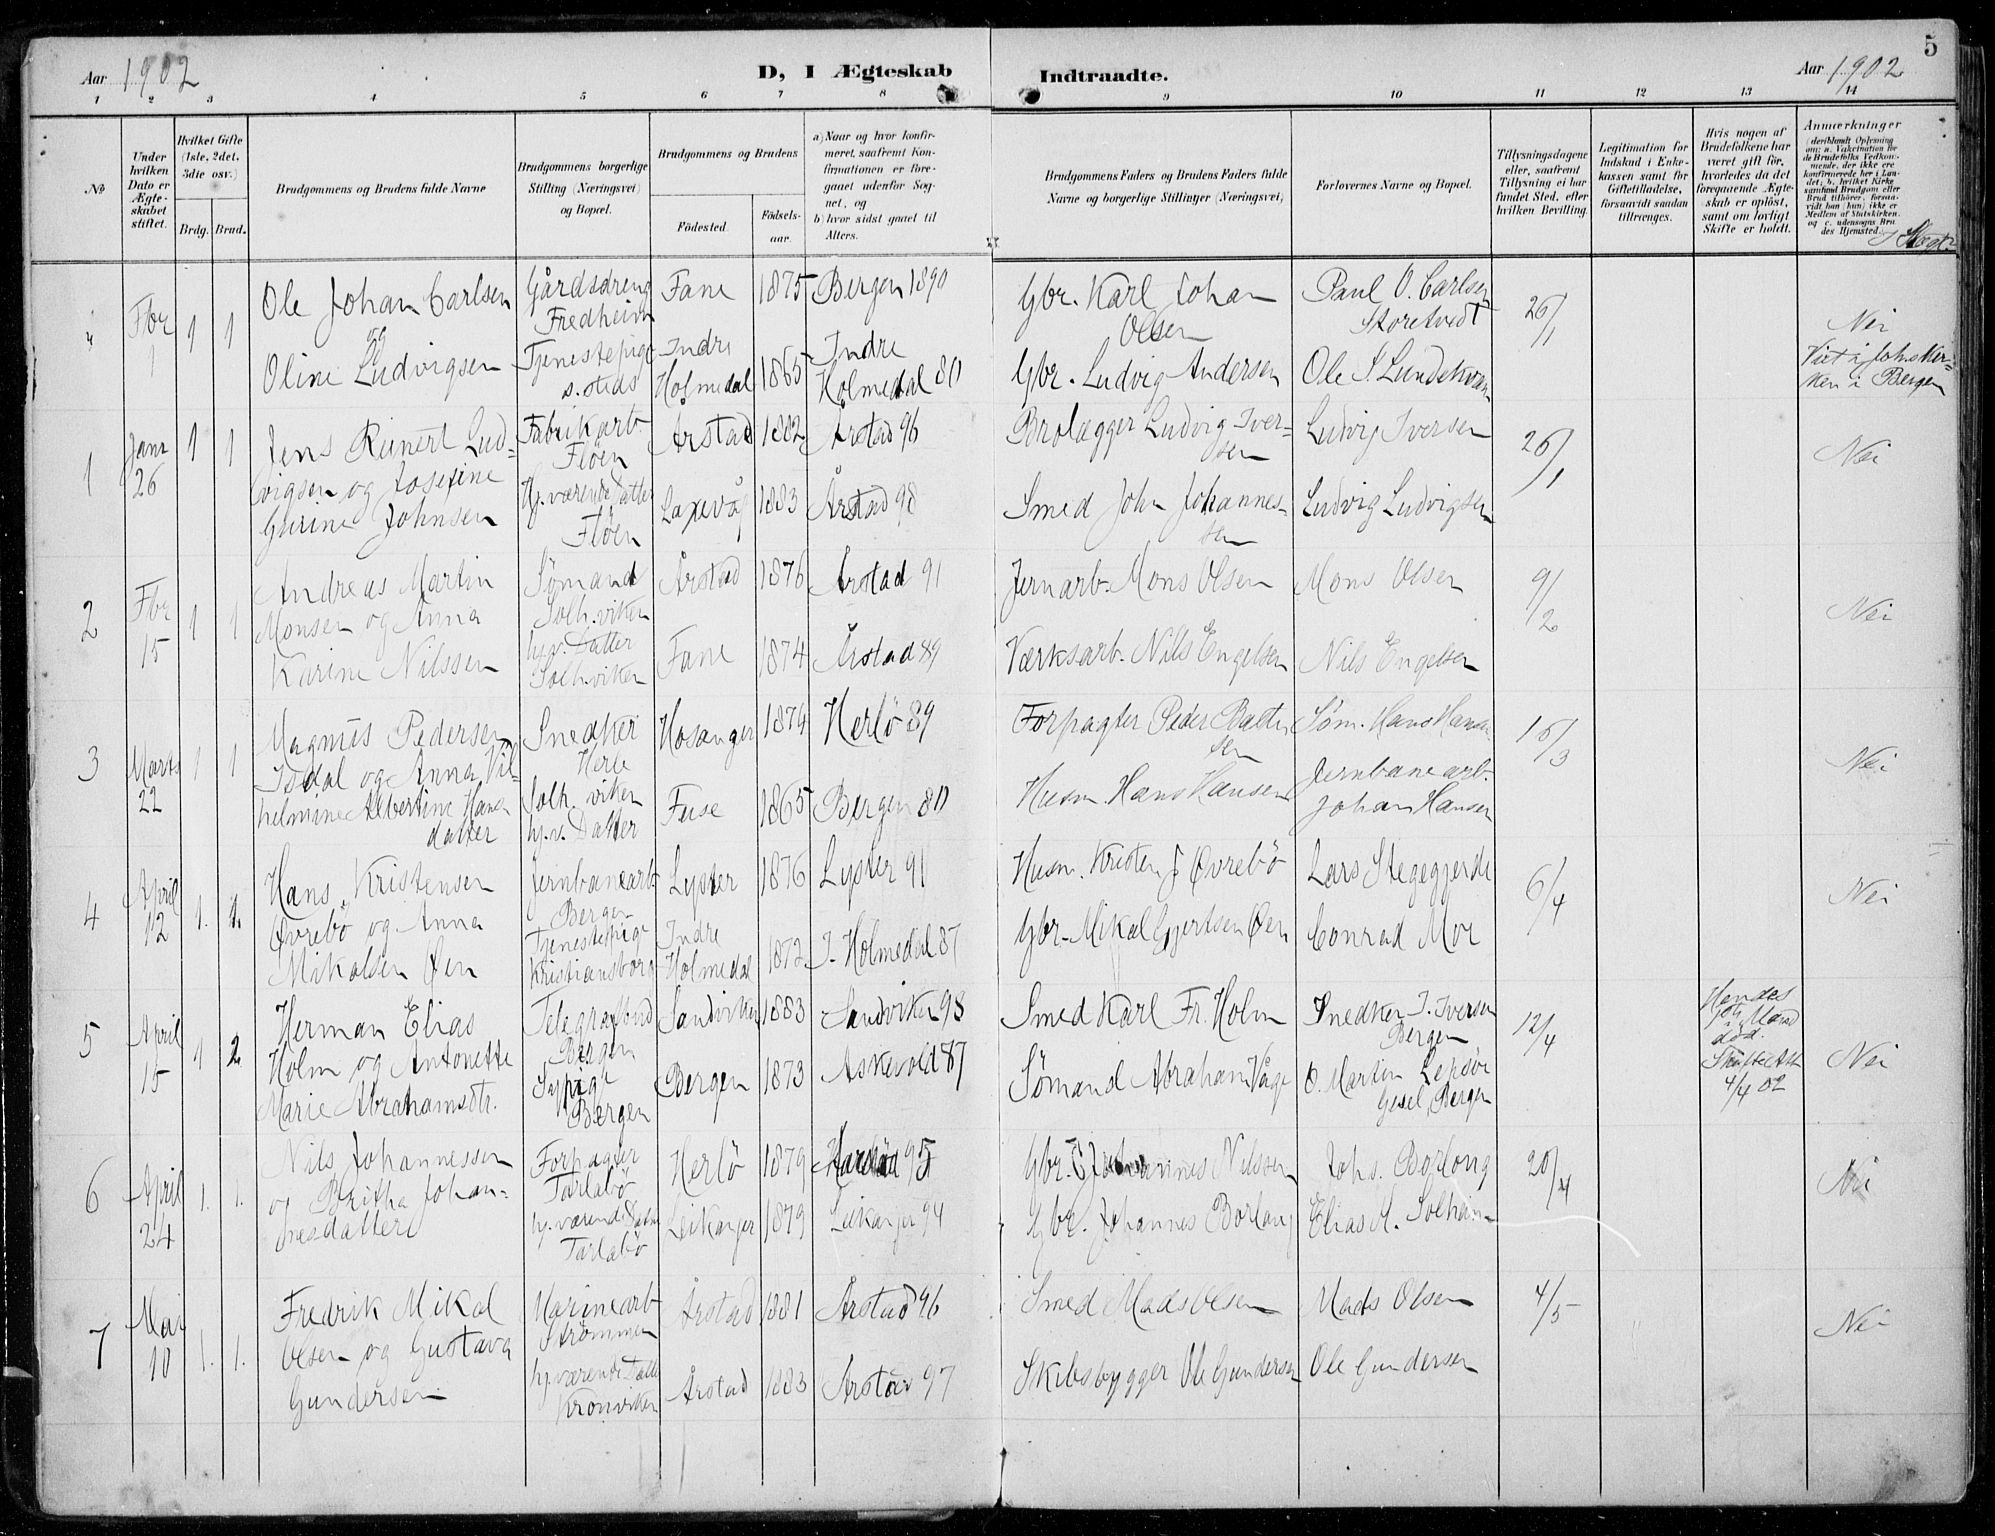 Aar 1902 D, I Ægteskab Indtraadte. Aar 1902 5
1 2 3 4 5 6 7 8 9 10 11 12 13 14
№
Under hvilken Dato er Ægteskabet stiftet.
Hvilket Gifte (1ste, 2det, 3die osv.)
Brdg. Brud.
Brudgommens og Brudens fulde Navne
Brudgommens borgerlige Stilling (Næringsvei) og Bopæl.
Brudgommens og Brudens
Fødested. Fødsels-aar.
a) Naar og hvor konfirmeret, saafremt Konfirmationen er foregaaet udenfor Sognet, og
b) hvor sidst gaaet til Alters.
Brudgommens Faders og Brudens Faders fulde Navne og borgerlige Stillinger (Næringsvei)
Forlovernes Navne og Bopæl.
Tillysningsdagene eller, saafremt Tillysning ei har fundet Sted, efter hvilken Bevilling.
Legitimation for Indskud i Enkekassen samt for Giftetilladelse, forsaavidt saadan tiltrænges.
Hvis nogen af Brudefolkene har været gift før, hvorledes da det foregaaende Ægteskab er opløst, samt om lovligt Skifte er holdt.
Anmærkninger
(deriblandt Oplysning om: a. Vakcination for de Brudefolks Vedkommende, der ikke ere konfirmerede her i Landet; b. hvilket Kirkesamfund Brudgom eller Brud tilhører, forsaavidt han (hun) ikke er Medlem af Statskirken, og c. udensogns Brudes Hjemsted.)
Fbr 1 1 1
Ole Johan Carlsen Gårdsdreng Fredheim Fane 1875 Bergen 1890 Gbr. Karl Johan Olsen Paul O. Carlsen Storetvedt 26/1 Nei
og
Oline Ludvigsen Tjenestepige s. steds Indre Holmedal 1865 Indre Holmedal 80 Gbr. Ludvig Andersen Ole S. Viet i Johs Kirken i Bergen
1 Janr 26 1 1
Jens Reinert Ludvigsen og Josefine Fabrikarb. Fløen Årstad 1882 Årstad 96 Brolægger Ludvig Iversen Ludvig Iversen 26/1 Nei
Gurine Johnsen Hj.værende Datter Fløen Laxevåg 1883 Årstad 98 Smed John Johannessen Ludvig Ludvigsen
2 Fbr 15 1 1
Andreas Martin Monsen og Anna Sømand Solh.viken Årstad 1876 Årstad 91 Jernarb. Mons Olsen Mons Olsen 9/2 Nei
Karine Nilssen hj.v. Datter Solh.viken Fane 1874 Årstad 89 Værksarb. Nils Engelsen Nils Engelsen
3 Marts 22 1 1
Magnus Pedersen Isdal og Anna Vilhelmine Snedker Herlø Hosanger 1874 Herlø 89 Forpagter Peder Søm. Hans Hansen 16/3 Nei
Albertine Hansdatter Solh.viken hj.v. Datter Fuse 1865 Bergen 80 Husm. Hans Hansen Jernbanearb. Johan Hansen
4 April 12 1. 1.
Hans Kristensen Øvrebø og Anna Jernbanearb. Bergen Lyster 1876 Lyster 91 Husm. Kristen J Øvrebø Lars Stegegjerde 6/4 Nei
Mikalsen Øen Tjenestepige Kristiansborg Indre Holmedal 1872 I. Holmedal 87 Gbr. Mikal Gjertsen Øen Conrad Moe
5 April 15 1 2
Herman Elias Holm og Antonette Telegrafbud Bergen Sandviken 1883 Sandviken 98 Smed Karl Fr. Holm Snedker I. Iversen Bergen 12/4 Nei
Marie Abrahamsdtr. Sypige Bergen Bergen 1873 Askevold 87 Sømand Abraham Våge O. Martin Lepsøe Bergen
Hendes Mand død. Skifte Att. 4/4 02
6 April 24 1. 1.
Nils Johannessen Forpagter Tarlebø Herlø 1879 95 Gbr. Johannes Nilssen Johs. Borlong 20/4 Nei
og Britha Johannesdatter hj.værende Datter Tarlebø Leikanger 1879 Leikanger 94 Gbr. Johannes Borlong Elias A.
7 Mai 10 1. 1.
Fredrik Mikal Olsen og Gustava Marinearb. Strømmen Årstad 1881 Årstad 96 Smed Mads Olsen Mads Olsen 4/5 Nei
Gundersen hj.værende Datter Kronviken Årstad 1883 Årstad 97 Skibsbygger Ole Gundersen Ole Gundersen